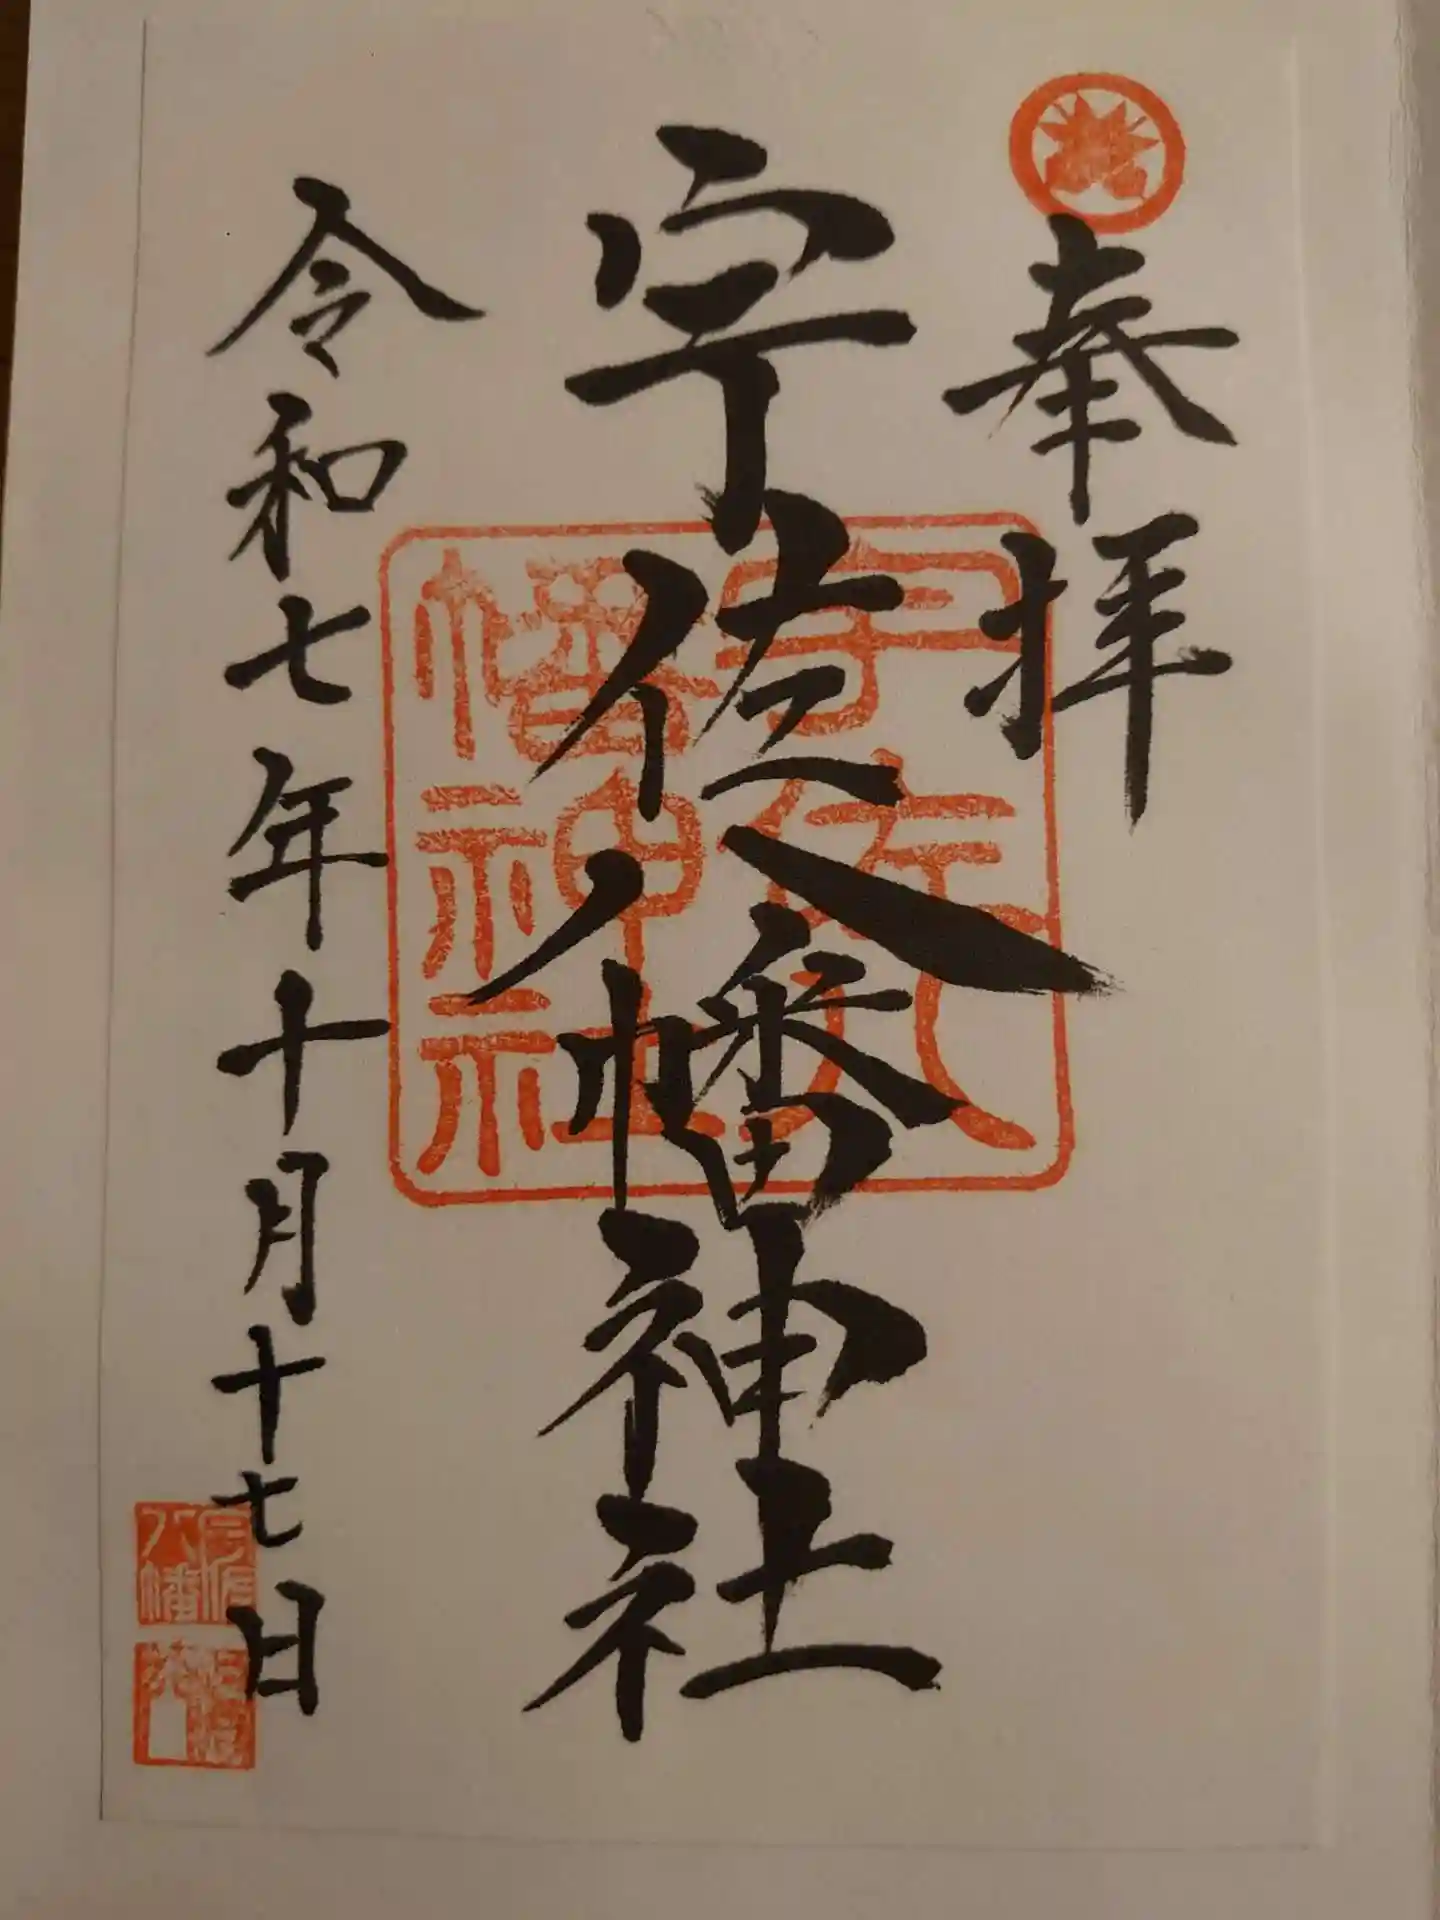 奉拝
宇佐八幡神社
令和七年十月十七日
宇佐八
幡神社
宇佐
八幡